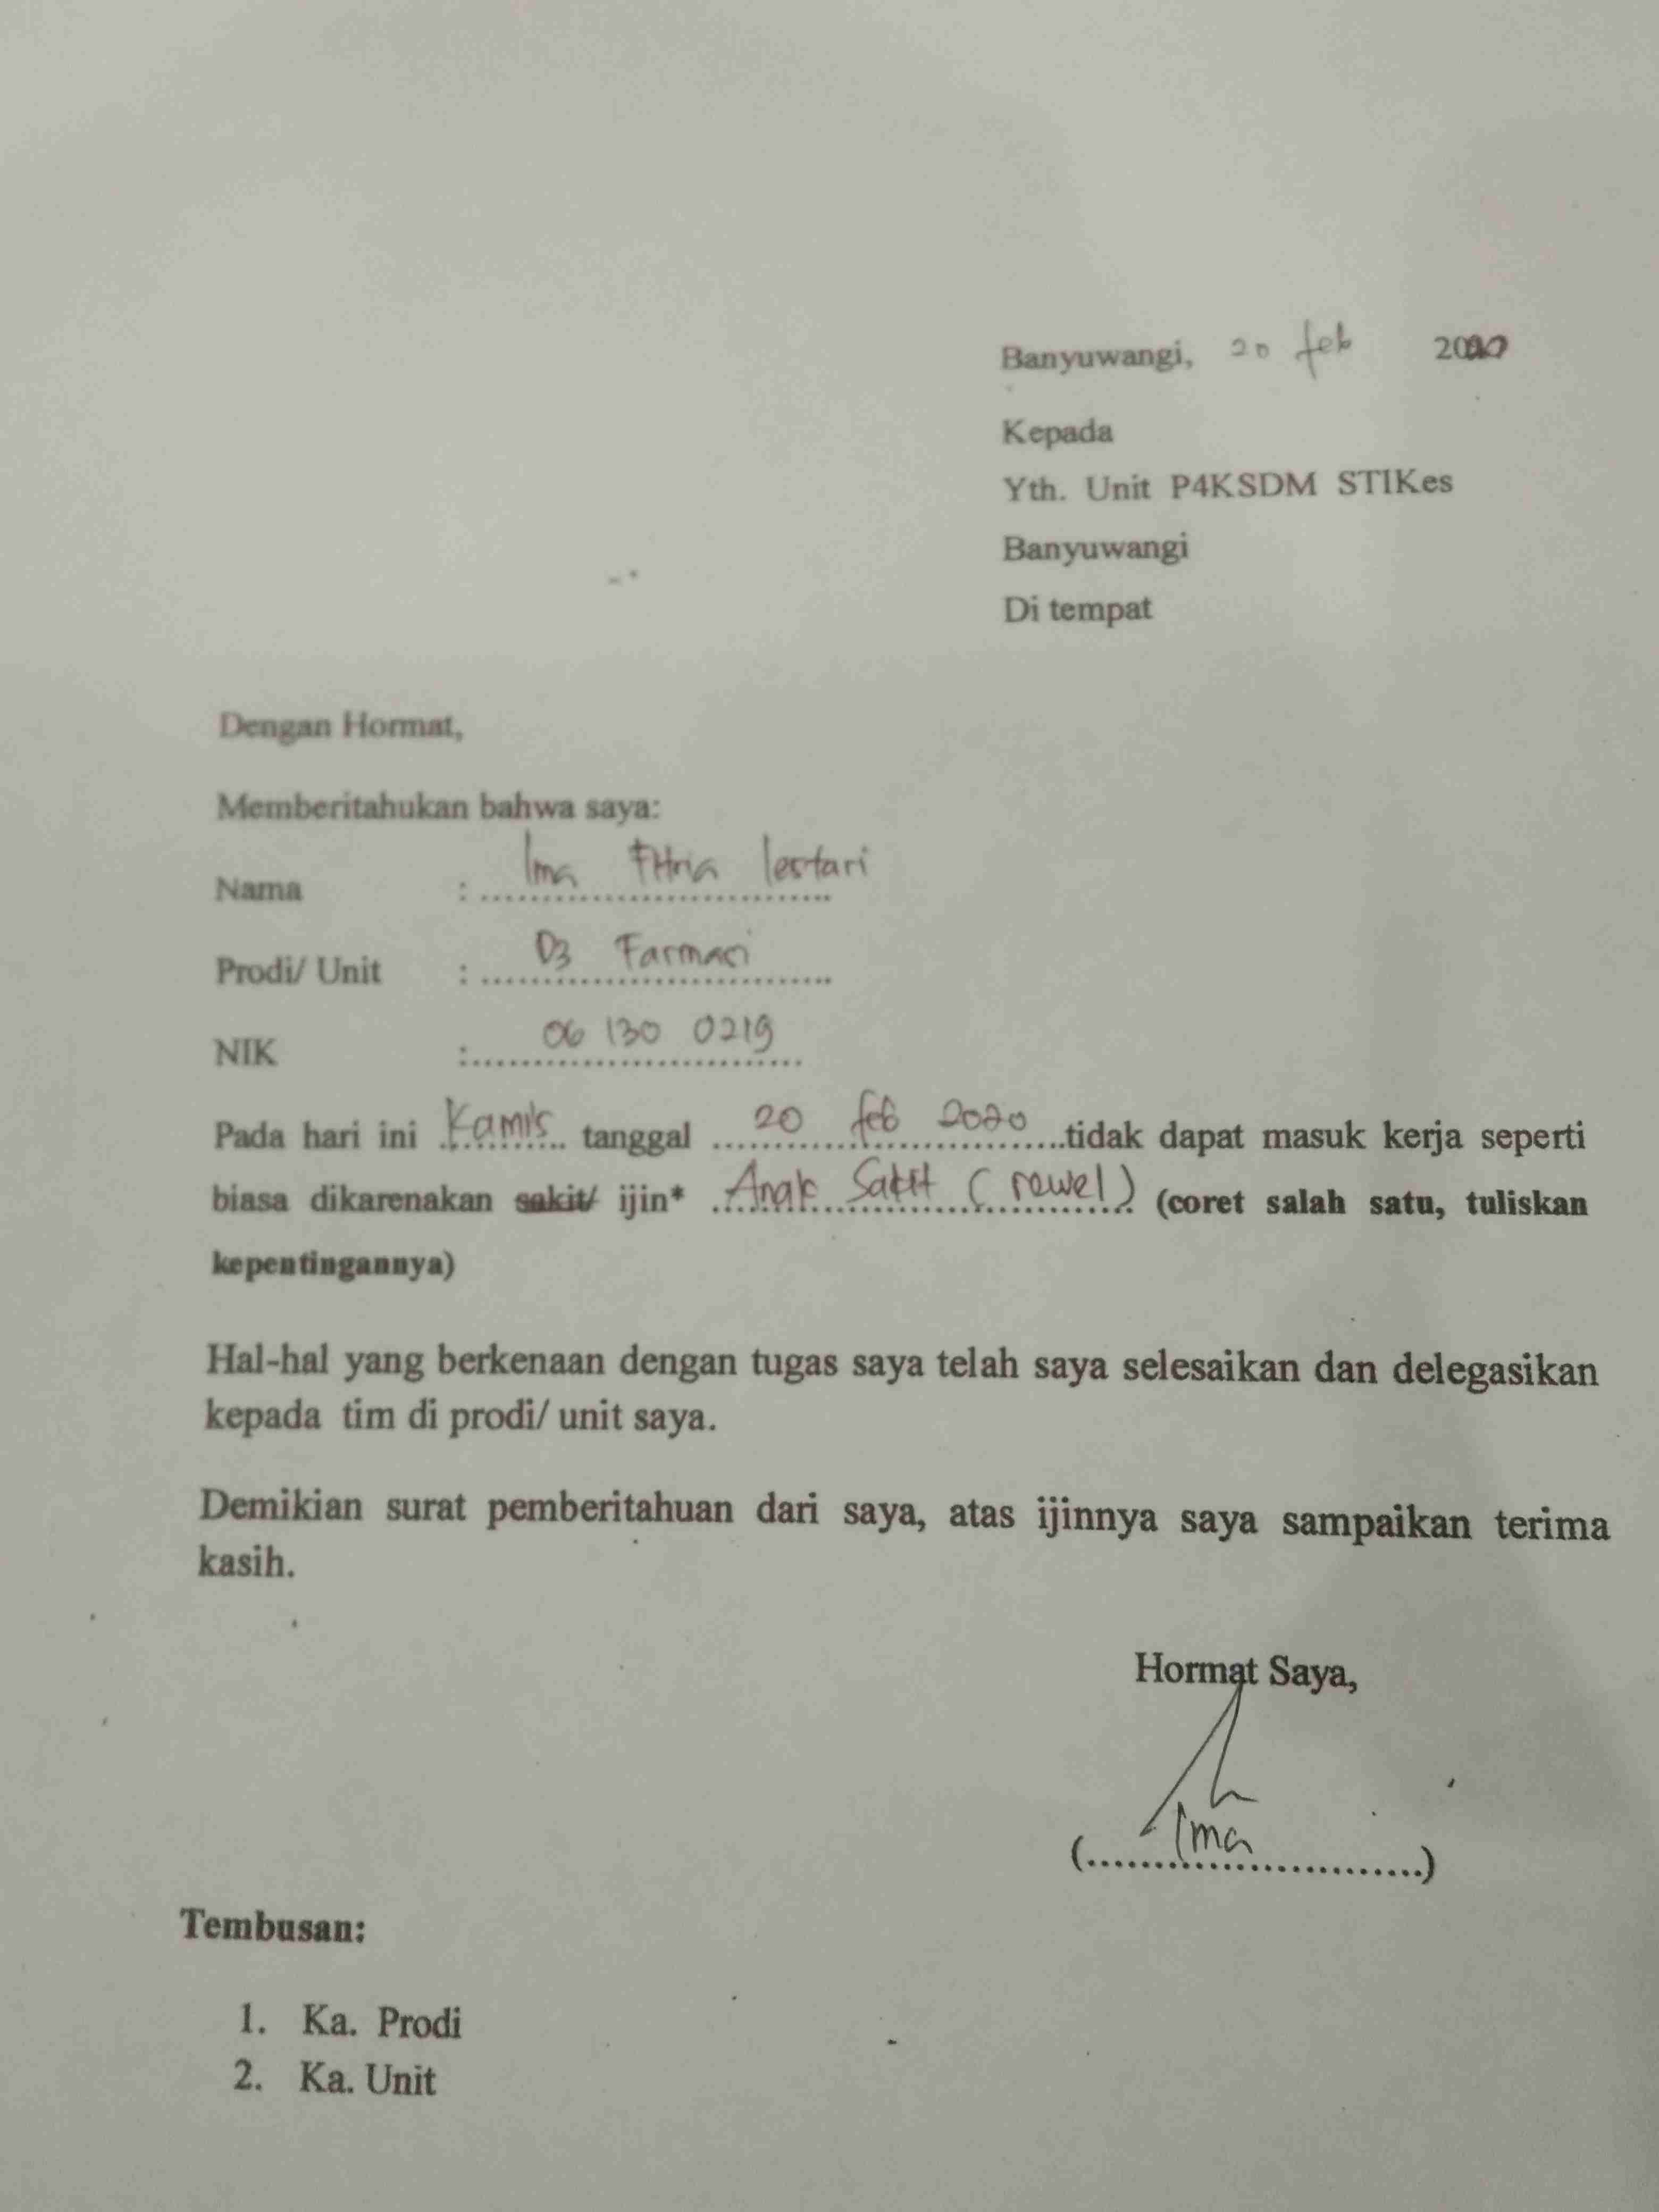 Banyuwangi, 20 feb 2020
Kepada
Yth. Unit P4KSDM STIKes
Banyuwangi
Di tempat
Dengan Hormat,
Memberitahukan bahwa saya:
Nama : Ima Fitria lestari
Prodi/ Unit : D3 Farmasi
NIK : 06 130 0219
Pada hari ini Kamis tanggal 20 feb 2020 tidak dapat masuk kerja seperti
biasa dikarenakan sakit/ ijin* Anak Sakit (rewel) (coret salah satu, tuliskan
kepentingannya)
Hal-hal yang berkenaan dengan tugas saya telah saya selesaikan dan delegasikan
kepada tim di prodi/ unit saya.
Demikian surat pemberitahuan dari saya, atas ijinnya saya sampaikan terima
kasih.
Hormat Saya,
(Ima)
Tembusan:
1. Ka. Prodi
2. Ka. Unit